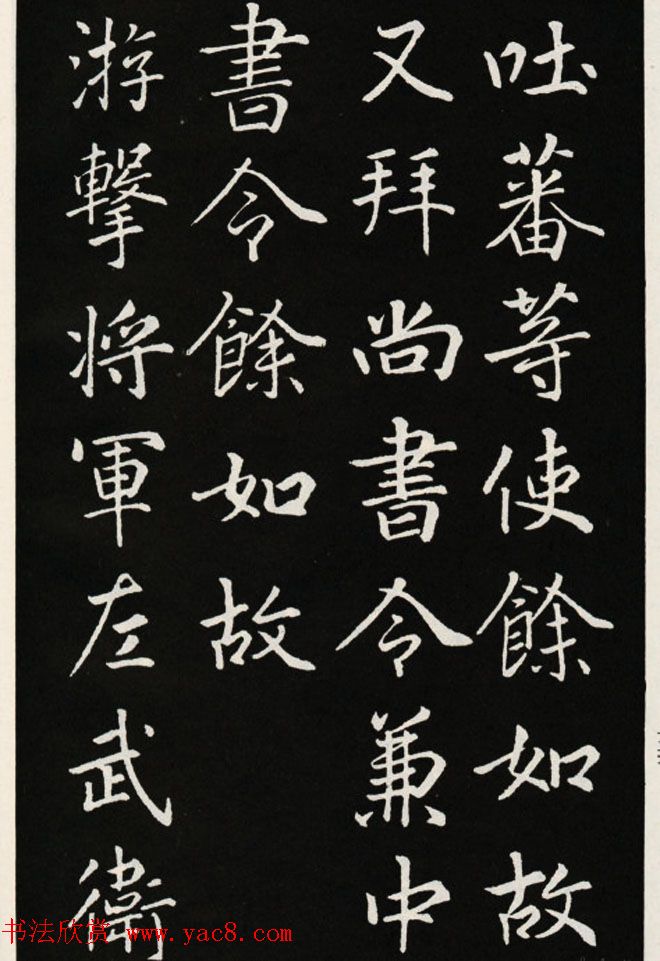 吐蕃等使餘如故
又拜尚書令兼中
書令餘如故
游擊将軍左武衛
书法欣赏 www.yac8.com